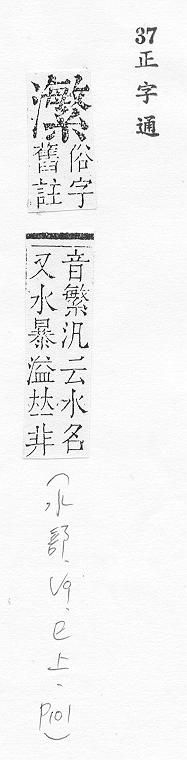 37正字通
瀿
俗字
舊註
音繁汎云水名
又水暴溢𠀤非
(水部.V9.巳上.P101)